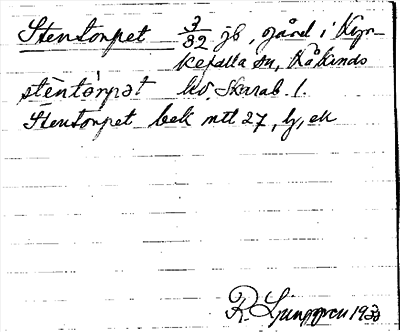 Stentorpet 3/32 jb, gård i Kyr-
kefalla sn, Kåkinds
stèntòrpət hd, Skarab. l.
Stentorpet bek mtl 27, ly, ek
R. Ljunggren 1930